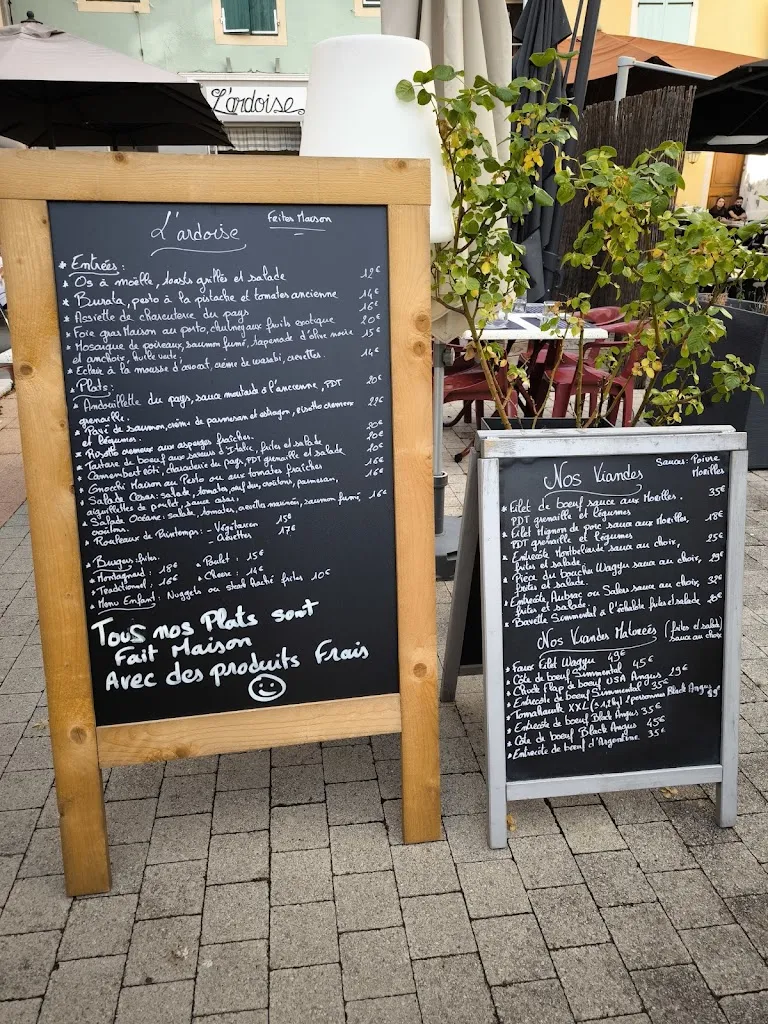 L'ardoise
L'ardoise
Faites Maison
* Entrées :
* Os à moëlle, toasts grillés et salade 12€
* Burata, pesto à la pistache et tomates ancienne 14€
* Assiette de charcuterie du pays 16€
* Foie gras Maison au porto, chutney aux fruits exotique 20€
* Mosaïque de poireaux, saumon fumé, tapenade d'olive noire 15€
et anchois, huile verte,
* Eclair à la mousse d'avocat, crème de wasabi, crevettes. 14€
* Plats :
* Andouillette du pays, sauce moutarde à l'ancienne, PDT 20€
grenaille.
* Pavé de saumon, crème de parmesan et estragon, risotto crémeux 22€
et légumes.
* Risotto crémeux aux asperges fraîches. 20€
* Tartare de boeuf aux saveurs d'Italie, frites et salade 20€
* Camembert rôti, charcuterie du pays, PDT grenaille et salade
* Gnocchi Maison au Pesto ou aux tomates fraîches 16€
* Salade César : salade, tomates, oeuf dur, croûtons, parmesan, 16€
aiguillettes de poulet, sauce césar.
* Salade Océane : salade, tomates, crevettes marinées, saumon fumé, 16€
croûtons.
* Rouleaux de Printemps : - Végétarien 15€
- Crevettes 17€
* Burgers frites.
* Montagnard : 15€ * Poulet : 15€
* Traditionnel : 16€ * Cheese : 14€
* Menu Enfant : Nuggets ou steak haché frites 10€
Tous nos Plats sont
Fait Maison
Avec des produits Frais
Nos Viandes
Sauces : Poivre
Morilles
* Filet de boeuf sauce aux Morilles. 35€
PDT grenaille et légumes
* Filet Mignon de porc sauce aux Morilles, 18€
PDT grenaille et légumes
* Entrecôte Montbéliarde sauce au choix, 25€
frites et salade
* Pièce du boucher Wagyu sauce au choix, 29€
frites et salade.
* Entrecôte Aubrac ou Salers sauce au choix, 32€
frites et salade.
* Bavette Simmental à l'échalote frites et salade 25€
Nos Viandes Maturées (frites et salade)
sauce au choix
* Faux Filet Wagyu 49€
* Côte de boeuf Simmental 45€
* Chuck Flap de boeuf USA Angus 29€
* Entrecôte de boeuf Simmental 35€
* Tomahawk XXL (≤1,2kg) 2 personnes Black Angus
* Entrecôte de boeuf Black Angus 35€
* Côte de boeuf Black Angus 45€
* Entrecôte de boeuf d'Argentine. 35€